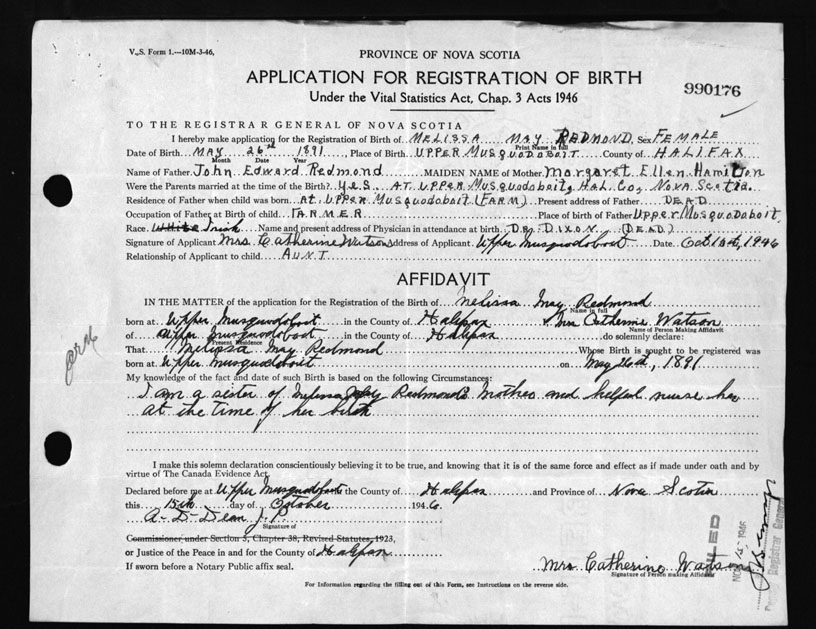 V.S. Form 1.—10M-3-46,
PROVINCE OF NOVA SCOTIA
APPLICATION FOR REGISTRATION OF BIRTH
Under the Vital Statistics Act, Chap. 3 Acts 1946
990176
TO THE REGISTRAR GENERAL OF NOVA SCOTIA
I hereby make application for the Registration of Birth of MELISSA MAY REDMOND, Sex FEMALE
Print Name in full
Date of Birth MAY 26th 1891, Place of Birth UPPER MUSQUODOBOIT County of HALIFAX
Month Date Year
Name of Father John Edward Redmond MAIDEN NAME of Mother Margaret Ellen Hamilton
Were the Parents married at the time of the Birth? Yes. AT UPPER MUSQUODOBOIT, HAL. Co, NOVA SCOTIA.
Residence of Father when child was born AT UPPER MUSQUODOBOIT (FARM) Present address of Father DEAD
Occupation of Father at Birth of child FARMER Place of birth of Father UPPER MUSQUODOBOIT,
Race. White Irish Name and present address of Physician in attendance at birth DR. DIXON, (DEAD)
Signature of Applicant Mrs. Catherine Watson Address of Applicant Upper Musquodoboit Date Oct, 1946
Relationship of Applicant to child AUNT
AFFIDAVIT
IN THE MATTER of the application for the Registration of the Birth of Melissa May Redmond
Name in full
born at Upper Musquodoboit in the County of Halifax Mrs Catherine Watson
Name of Person Making Affidavit
of Upper Musquodoboit in the County of Halifax do solemnly declare:
Present Residence
That Melissa May Redmond Whose Birth is sought to be registered was
born at Upper Musquodoboit on May 26th, 1891
My knowledge of the fact and date of such Birth is based on the following Circumstances:
I am a sister of Melissa May Redmond's Mother and helped nurse her
at the time of her birth
I make this solemn declaration conscientiously believing it to be true, and knowing that it is of the same force and effect as if made under oath and by
virtue of The Canada Evidence Act.
Declared before me at Upper Musquodoboit the County of Halifax and Province of Nova Scotia
this 15th day of October 1946
A. D. Dean J. P.
Signature of
Commissioner, under Section 5, Chapter 38, Revised Statutes, 1923,
or Justice of the Peace in and for the County of Halifax
If sworn before a Notary Public affix seal.
Mrs Catherine Watson
Signature of Person making Affidavit
FILED
NOV 15 1946
Registrar General
For Information regarding the filling out of this Form, see Instructions on the reverse side.